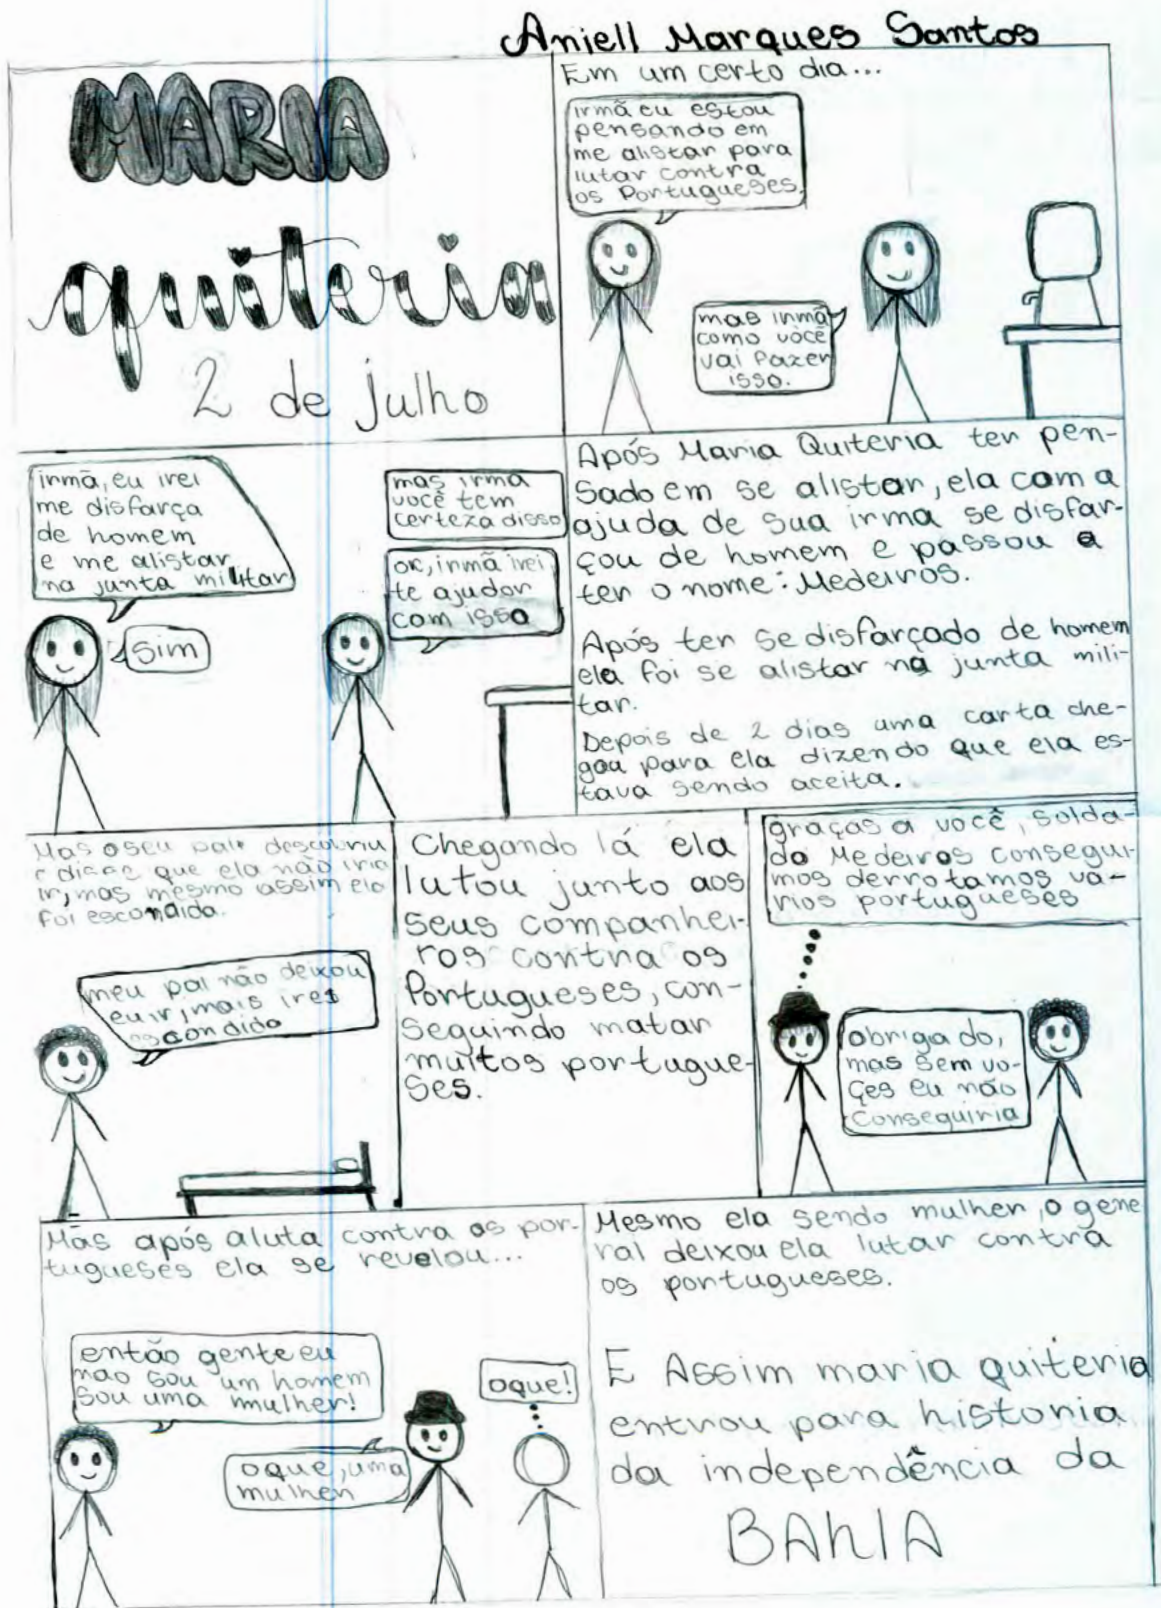 Aniell Marques Santos
MARIA
quiteria
2 de julho
Em um certo dia...
irmã eu estou
pensando em
me alistar para
lutar contra
os Portugueses.
mas irmã
como você
vai fazer
isso.
irmã, eu irei
me disfarça
de homem
e me alistar
na junta militar
mas irma
você tem
certeza disso
Sim
ok, irmã irei
te ajudar
com isso
Após Maria Quiteria ter pen-
sado em se alistar, ela com a
ajuda de sua irma se disfar-
çou de homem e passou a
ter o nome: Medeiros.
Após ter se disfarçado de homem
ela foi se alistar na junta mili-
tar.
Depois de 2 dias uma carta che-
gou para ela dizendo que ela es-
tava sendo aceita.
Mas o seu pai descobriu
e disse que ela não iria
ir, mas mesmo assim ela
foi escondida.
meu pai não deixou
eu ir, mais irei
escondido
Chegando lá ela
lutou junto aos
seus companhei-
ros contra os
Portugueses, con-
seguindo matar
muitos portugue-
ses.
graças a você, solda-
do Medeiros consegui-
mos derrotamos vá-
rios portugueses
obrigado,
mas sem vo-
çes eu não
conseguiria
Mas após aluta contra os por-
tugueses ela se revelou...
então gente eu
não sou um homem
sou uma mulher!
oque, uma
mulher
oque!
Mesmo ela sendo mulher, o gene
ral deixou ela lutar contra
os portugueses.
E Assim maria quiteria
entrou para historia
da independência da
BAHIA